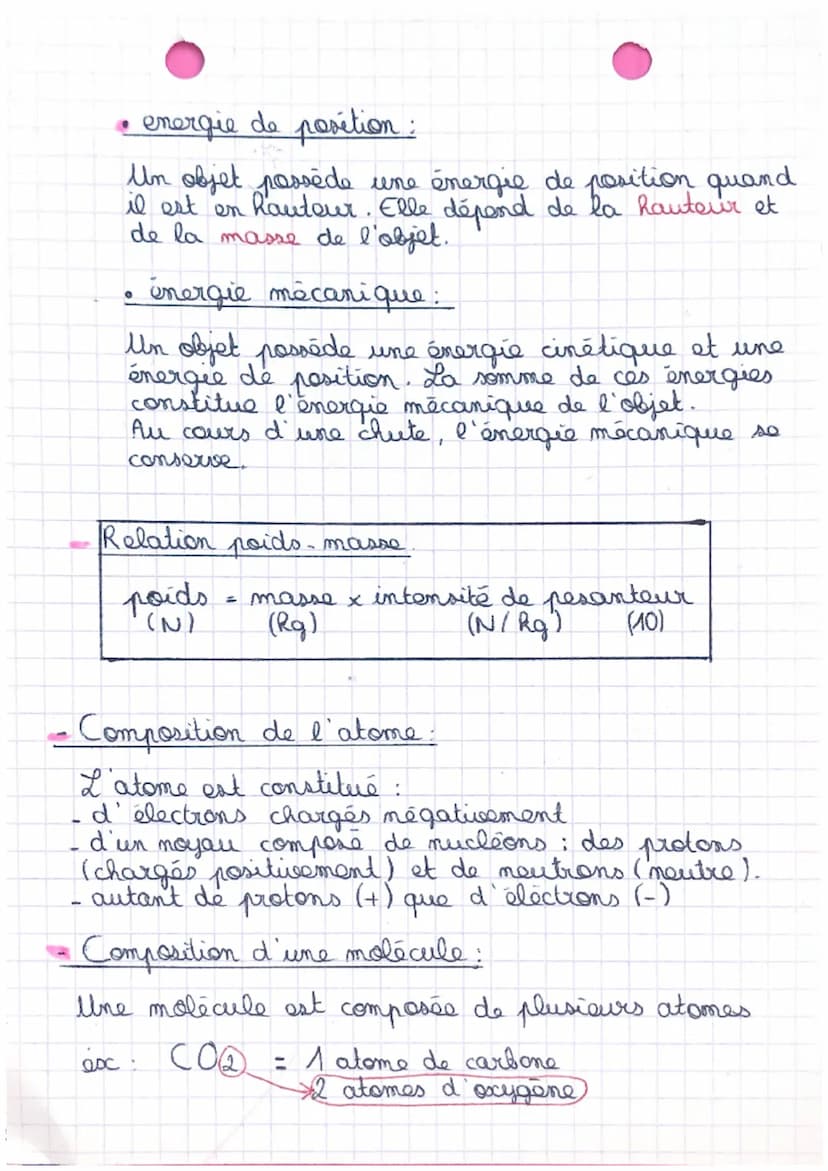 • energie de position :
Un objet possède une énergie de position quand
il est en hauteur. Elle dépend de la hauteur et
de la masse de l'objet.
• énergie mécanique :
Un objet possède une énergie cinétique et une
énergie de position. La somme de ces énergies
constitue l'énergie mécanique de l'objet.
Au cours d'une chute, l'énergie mécanique se
conserve.
- Relation poids-masse.
poids = masse x intensité de pesanteur
(N) (kg) (N/kg) (10)
- Composition de l'atome :
L'atome est constitué :
- d'électrons chargés négativement
- d'un noyau composé de nucléons : des protons
(chargés positivement) et de neutrons (neutre).
- autant de protons (+) que d'électrons (-)
- Composition d'une molécule :
Une molécule est composée de plusieurs atomes
ex : CO2 = 1 atome de carbone
2 atomes d'oxygène